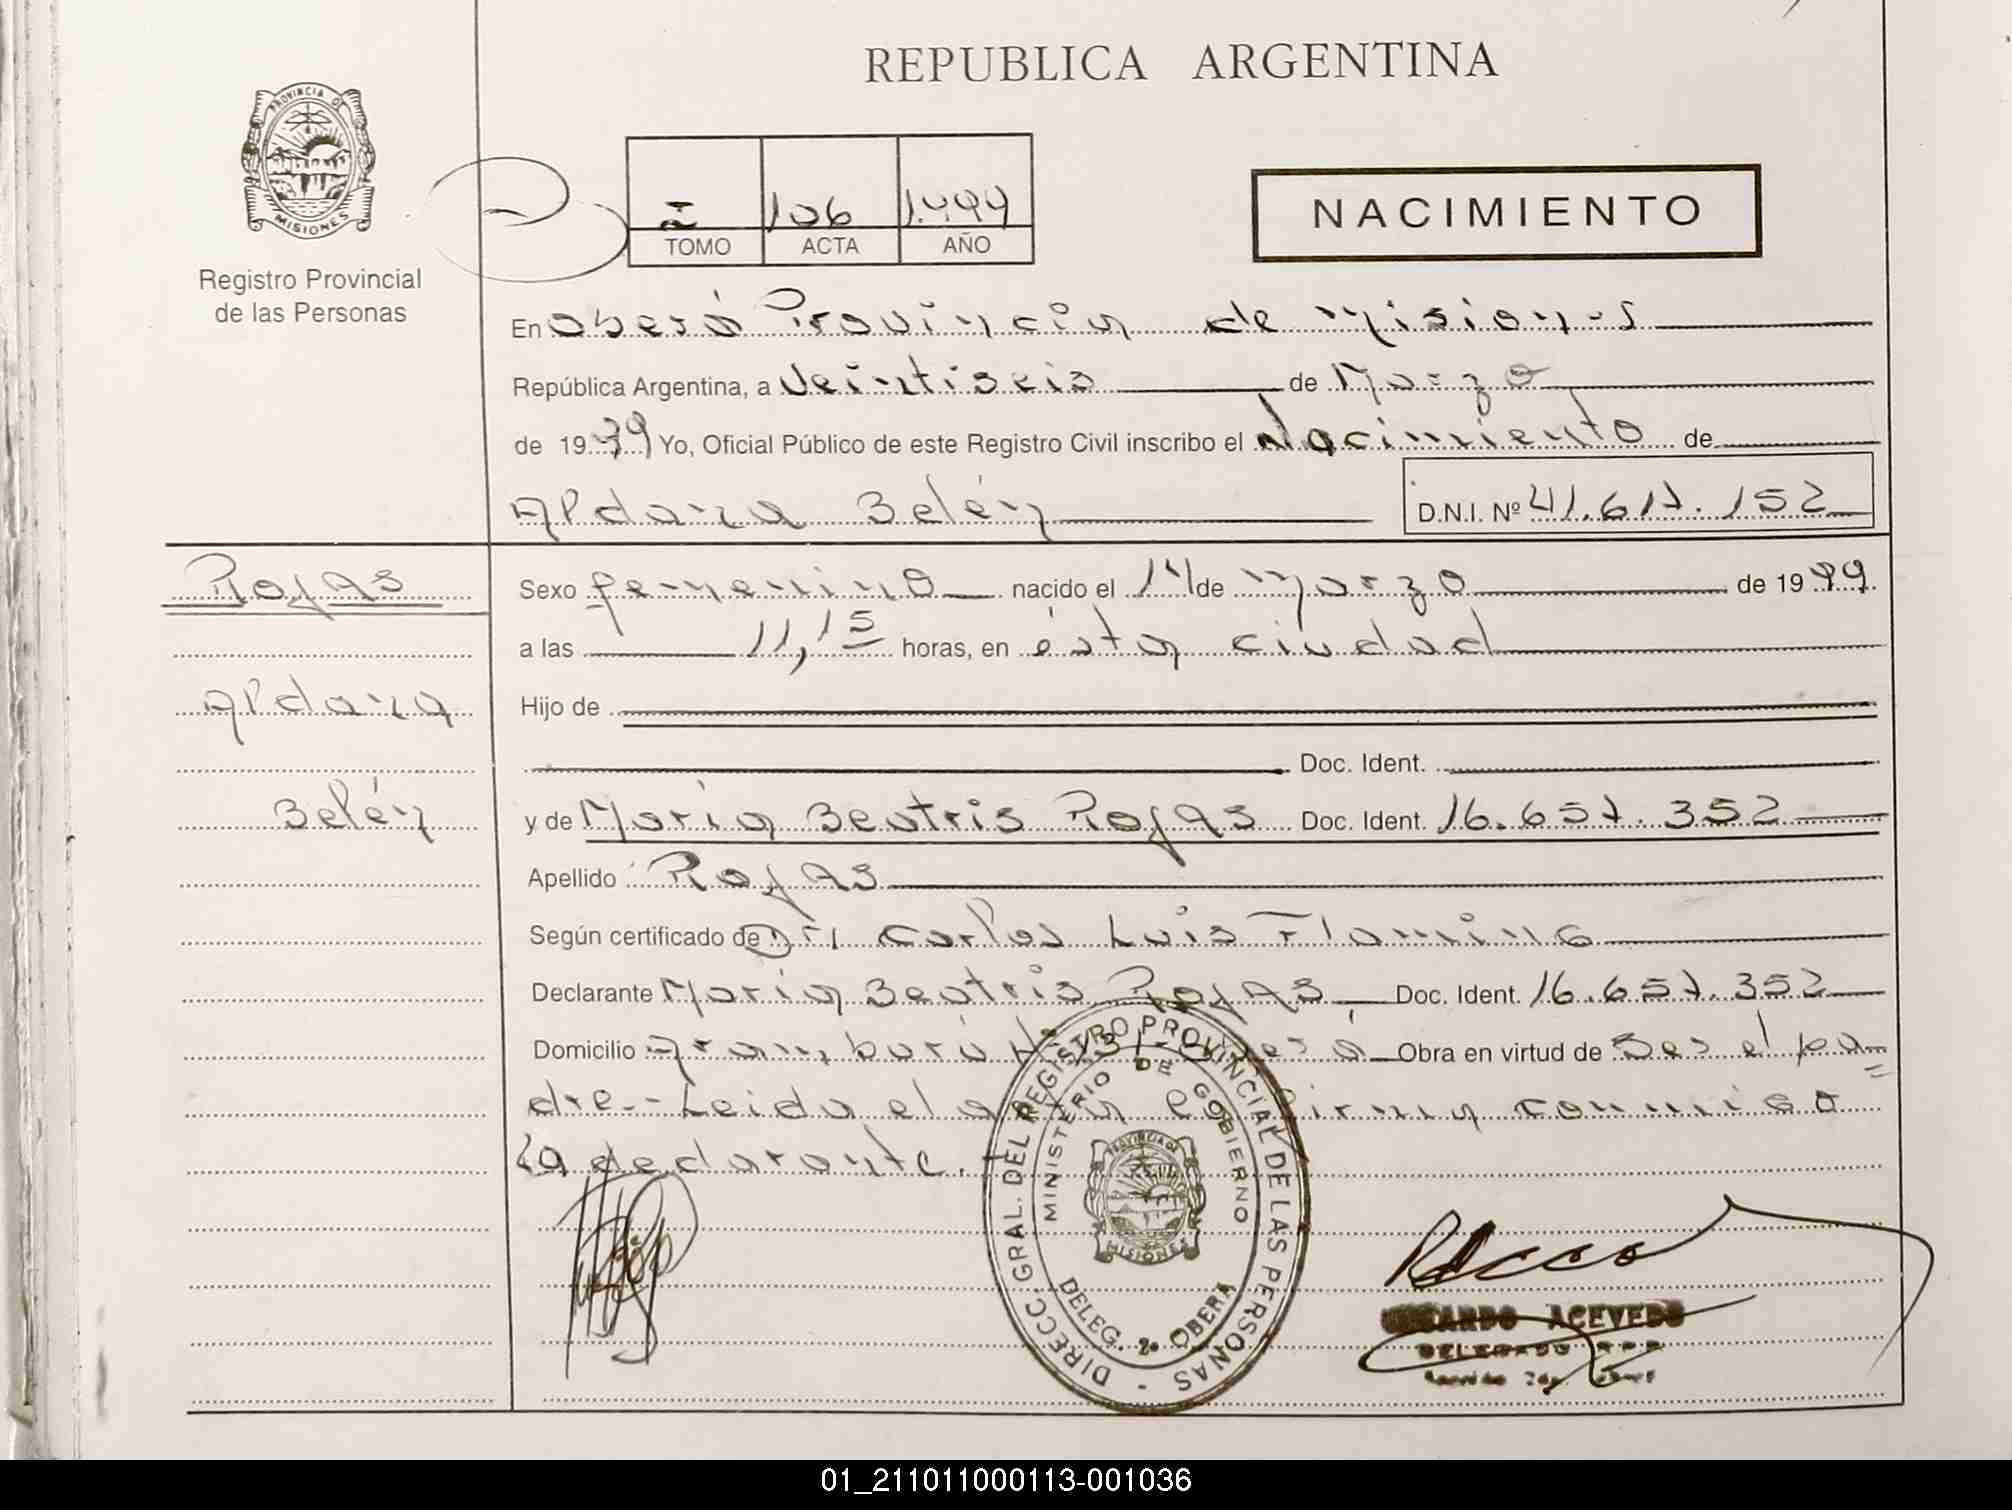 REPUBLICA ARGENTINA
PROVINCIA DE
MISIONES
Registro Provincial
de las Personas
106 1.999
TOMO ACTA AÑO
NACIMIENTO
En Oberá Provincia de Misiones
República Argentina, a Veintiseis de Marzo
de 1999 Yo, Oficial Público de este Registro Civil inscribo el Nacimiento de
Aldana Belén D.N.I. Nº 41.617.152
Rojas
Aldana
Belén
Sexo femenino nacido el 14 de Marzo de 1999
a las 11,15 horas, en ésta ciudad
Hijo de
Doc. Ident.
y de María Beatris Rojas Doc. Ident. 16.657.352
Apellido Rojas
Según certificado de Dr. Carlos Luis
Declarante María Beatris Rojas Doc. Ident. 16.657.352
Domicilio Aramburú Nº 131 - Oberá Obra en virtud de Ser el pa=
dre.- Leida el acta la firma conmigo
la declarante.
DIRECC. GRAL. DEL REGISTRO PROVINCIAL DE LAS PERSONAS
MINISTERIO DE GOBIERNO
PROVINCIA DE
MISIONES
DELEG. 2ª OBERA
ACEVEDO
DELEGADO R.P.P.
01_211011000113-001036